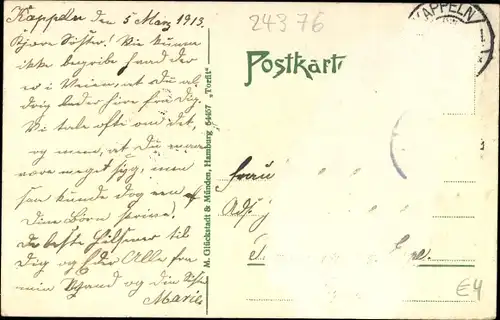 Kappeln den 5 Marz 1913.
Kjære Søster! Vi kunne
ikke begribe hvad der
er i Veien, at du al
drig lader høre fra dig.
Vi tale ofte om det,
og mene, at Du maa
være meget syg, men
saa kunde dog en af
Dine Børn skrive!
De beste Hilsener til
Dig og Eder Alle fra
min Mand og din Søster
Marie
24376
KAPPELN
Postkarte
M. Glückstadt & Münden, Hamburg 64467 „Torfit"
Frau
E4